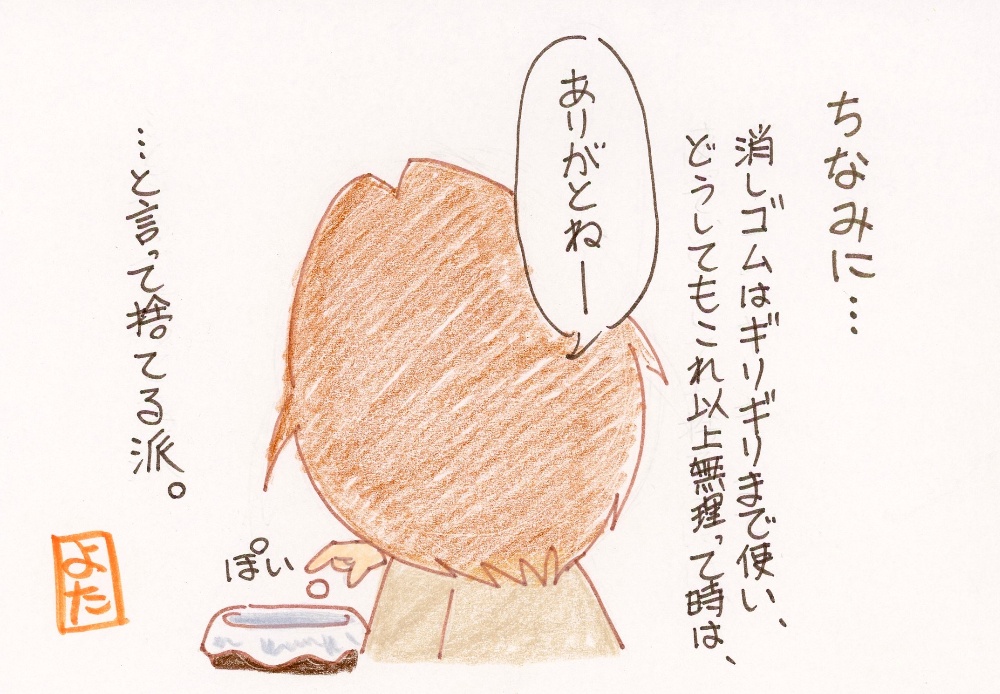 ちなみに…
消しゴムはギリギリまで使い、
どうしてもこれ以上無理って時は、
ありがとねー
ぽい
…と言って捨てる派。
よた